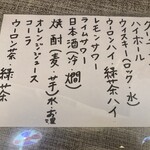 ハイボール
ウィスキー(ロック・水)
ウーロンハイ・緑茶ハイ
レモンサワー
ライムサワー
日本酒(冷・燗)
焼酎(麦・芋)水・お湯
オレンジジュース
コーラ
ウーロン茶・緑茶